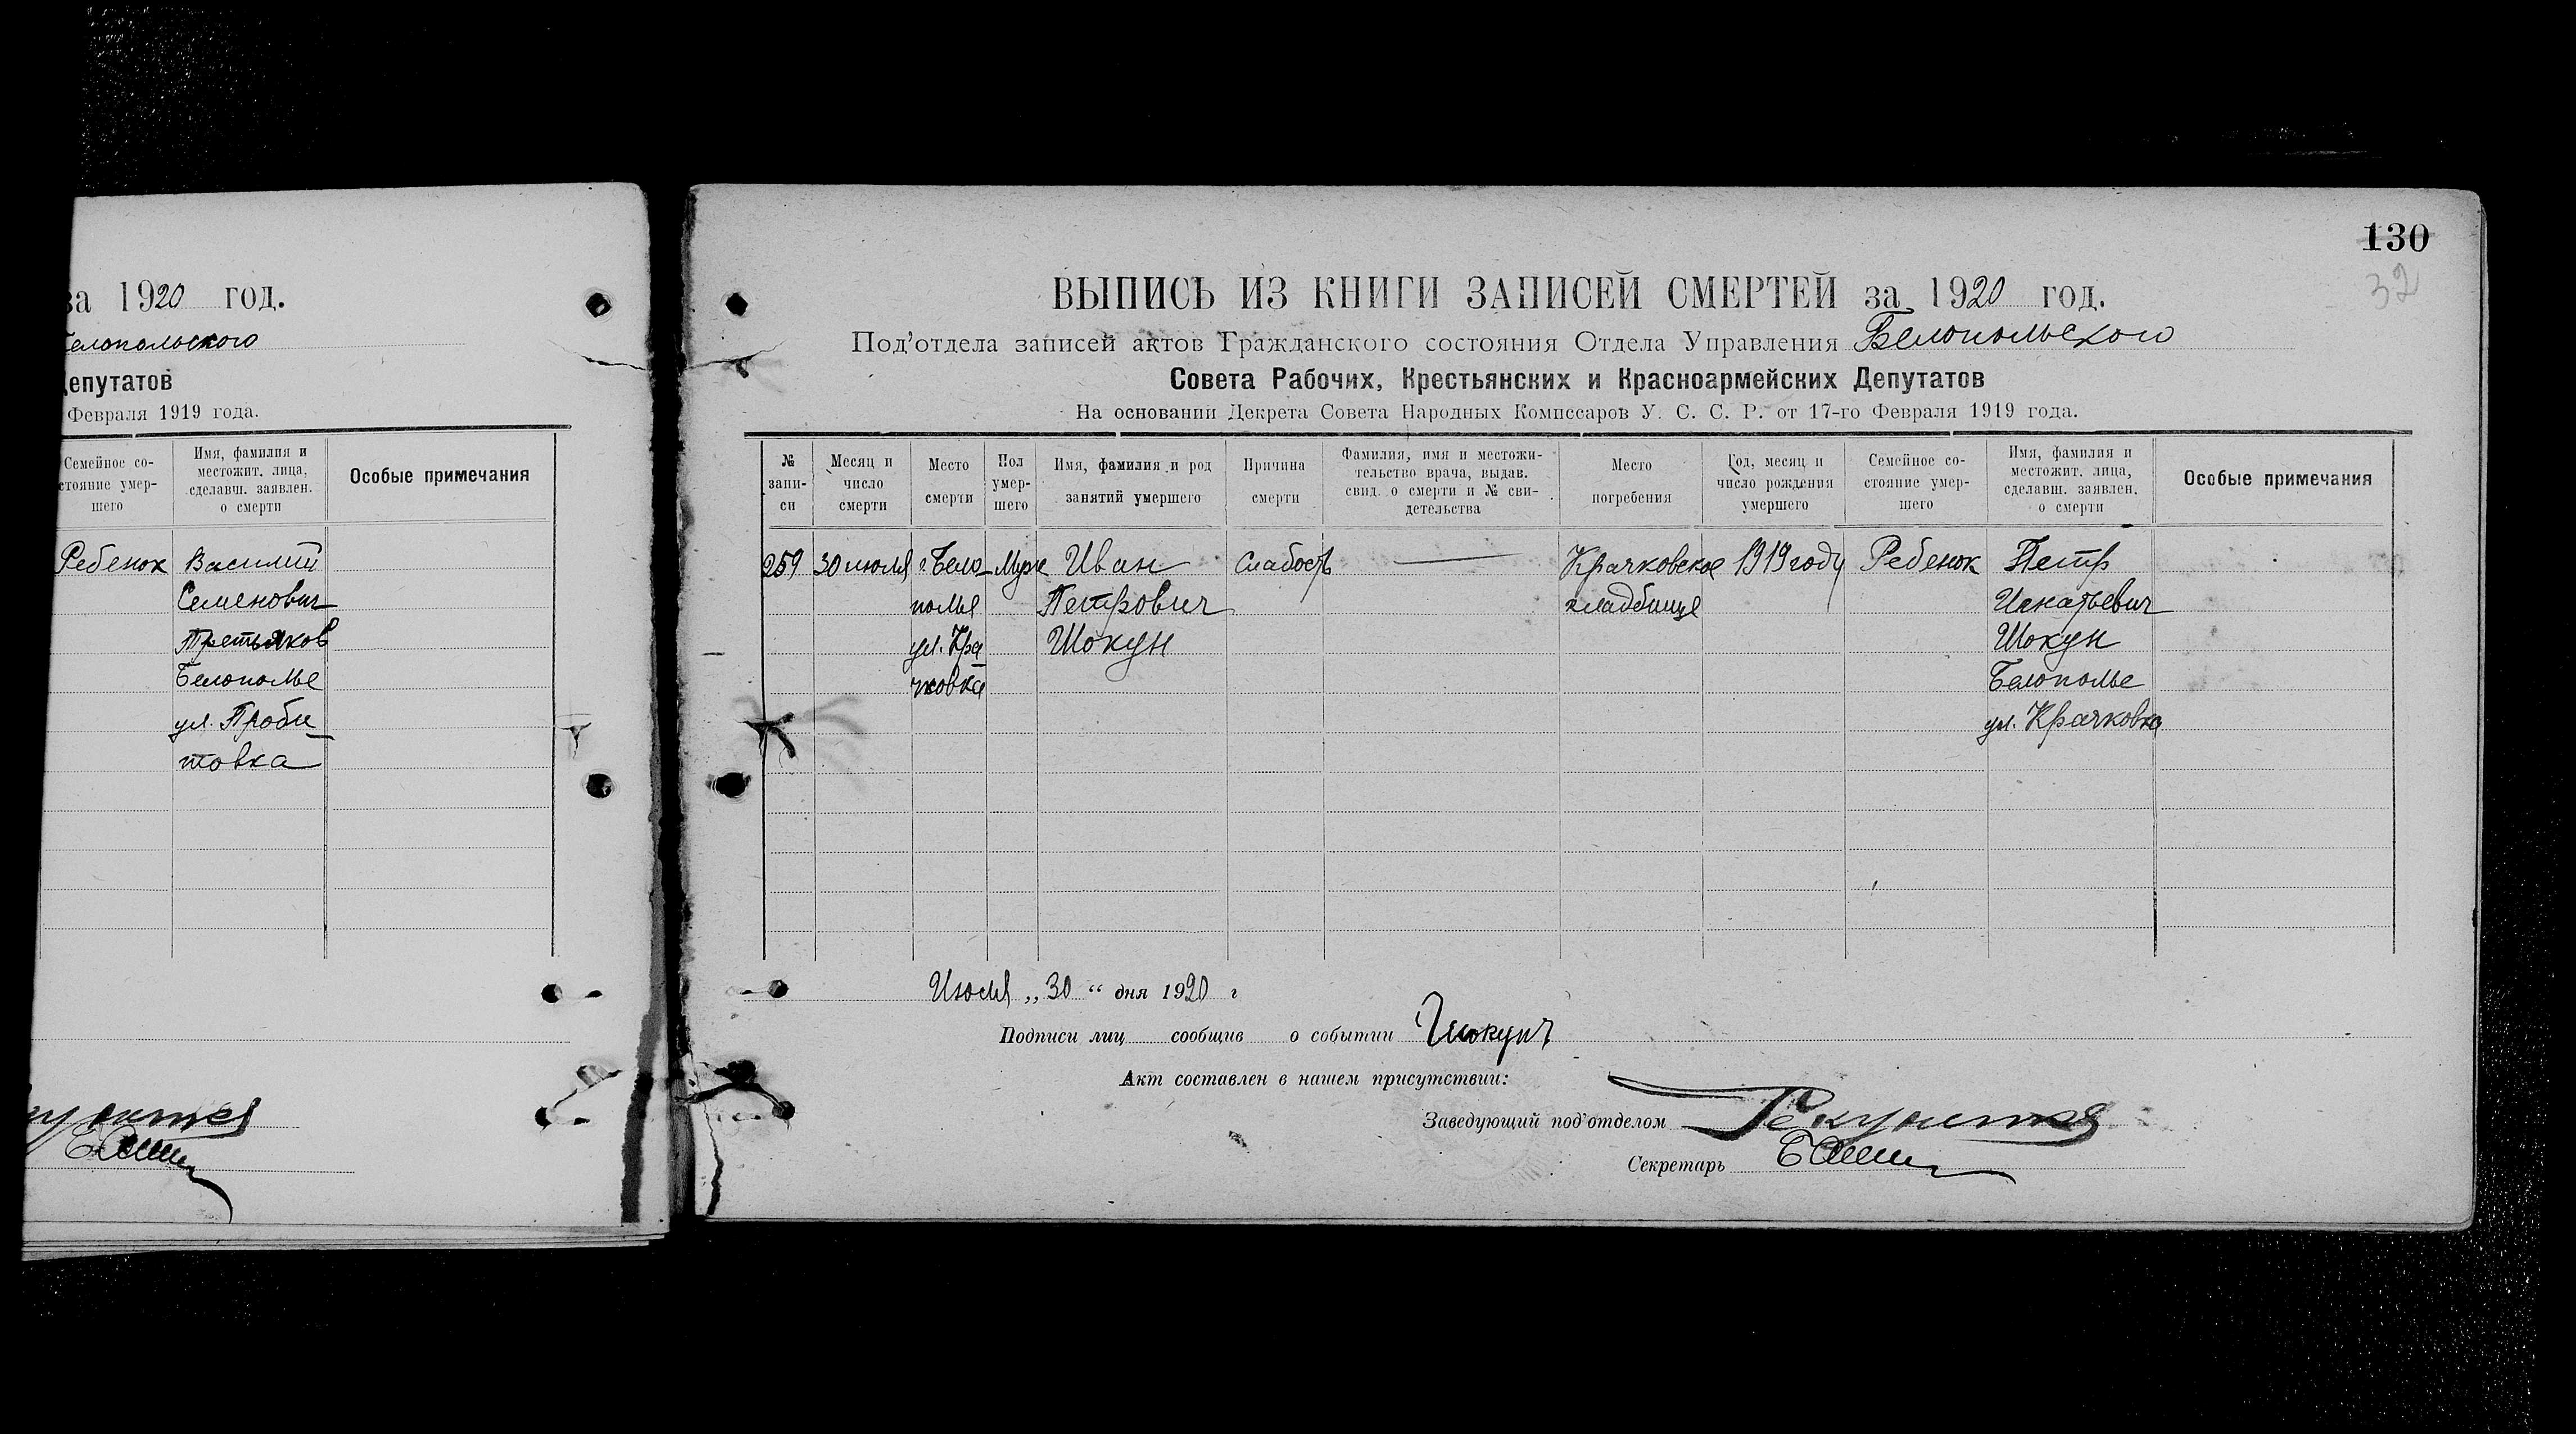 за 1920 год.
Белопольского
Депутатов
Февраля 1919 года.
Семейное со-
стояние умер-
шего
Имя, фамилия и
местожит. лица,
сделавш. заявлен.
о смерти
Особые примечания
Ребенок
Василий
Семенович
Третьяков
Белополье
ул. Проби
товка
130
32
ВЫПИСЬ ИЗ КНИГИ ЗАПИСЕЙ СМЕРТЕЙ за 1920 год.
Под'отдела записей актов Гражданского состояния Отдела Управления Белопольского
Совета Рабочих, Крестьянских и Красноармейских Депутатов
На основании Декрета Совета Народных Комиссаров У. С. С. Р. от 17-го Февраля 1919 года.
№
запи-
си
Месяц и
число
смерти
Место
смерти
Пол
умер-
шего
Имя, фамилия и род
занятий умершего
Причина
смерти
Фамилия, имя и местожи-
тельство врача, выдав.
свид. о смерти и № сви-
детельства
Место
погребения
Год, месяц и
число рождения
умершего
Семейное со-
стояние умер-
шего
Имя, фамилия и
местожит. лица,
сделавш. заявлен.
о смерти
Особые примечания
259
30 июля
г. Бело-
полье
ул. Кра
чковка
Муж
Иван
Петрович
Шокун
Слабость
Крачковское
кладбище
1919 году
Ребенок
Петр
Игнатьевич
Шокун
Белополье
ул. Крачковка
Июля „30“ дня 1920 г
Подписи лиц сообщив о событии Шокунъ
Акт составлен в нашем присутствии:
Заведующий под'отделом
Секретарь